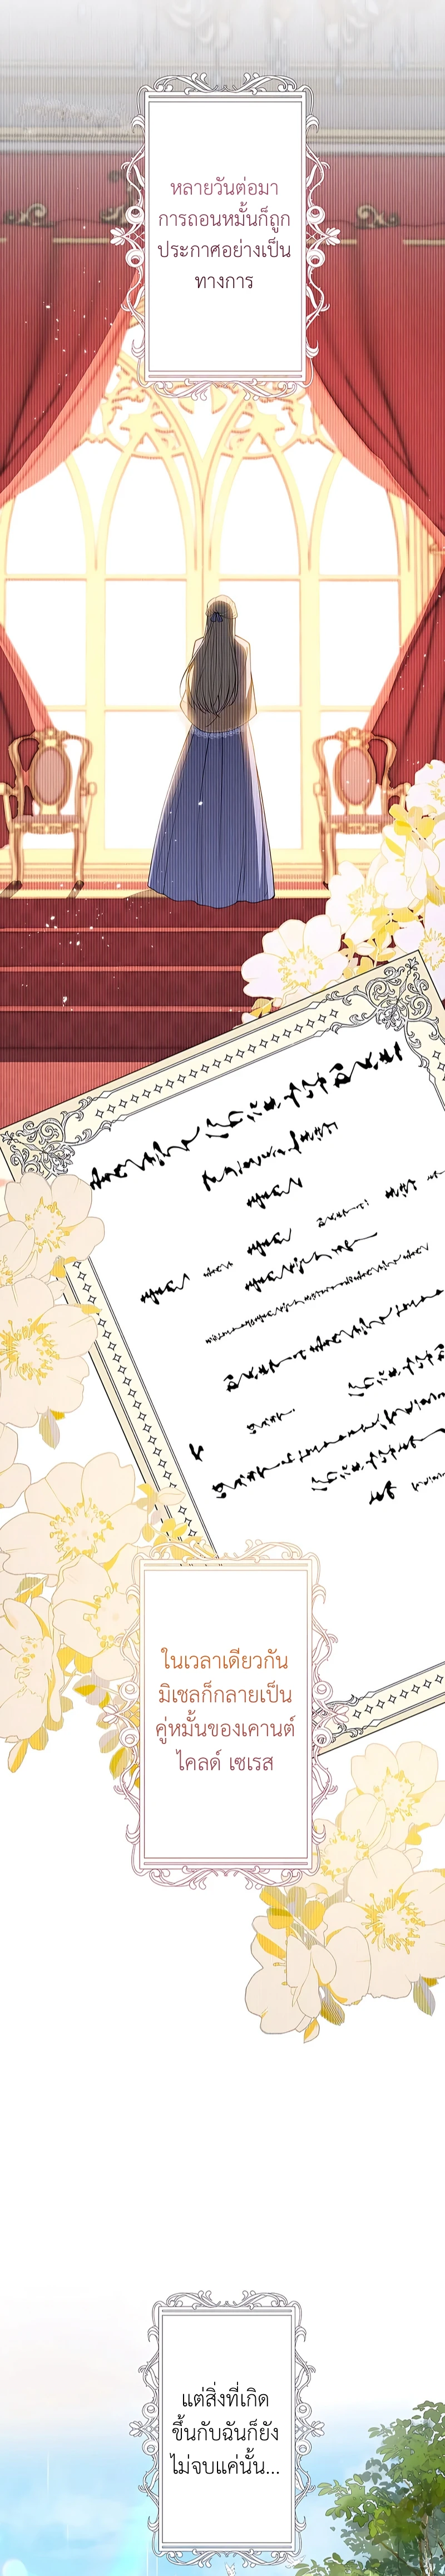 หลายวันต่อมา
การถอนหมั้นก็ถูก
ประกาศอย่างเป็น
ทางการ
ในเวลาเดียวกัน
มิเชลก็กลายเป็น
คู่หมั้นของเคานต์
ไคลด์ เซเรส
แต่สิ่งที่เกิด
ขึ้นกับฉันก็ยัง
ไม่จบแค่นั้น...